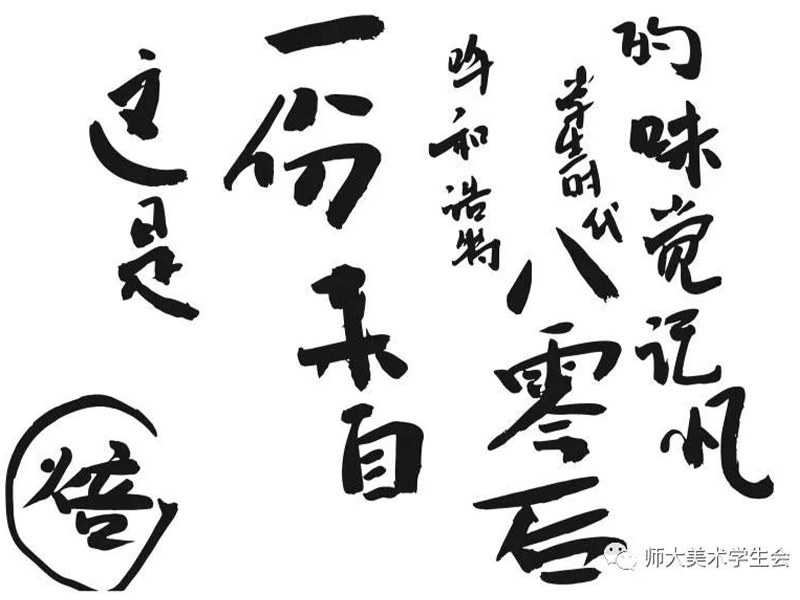 这是
一份来自
呼和浩特
学生时代
八零后
的味觉记忆
焙
师大美术学生会